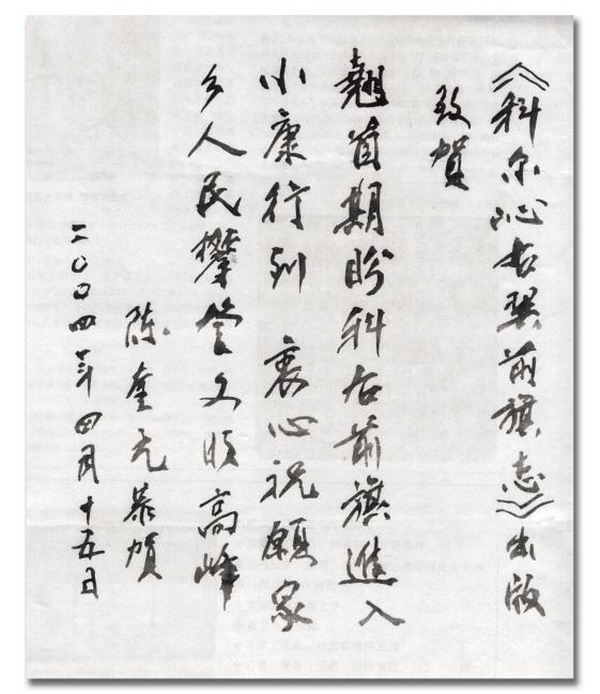 《科尔沁右翼前旗志》出版
致賀
翹首期盼科右前旗進入
小康行列 衷心祝願家
乡人民攀登文高峰
陈奎元恭賀
二〇〇四年四月十五日